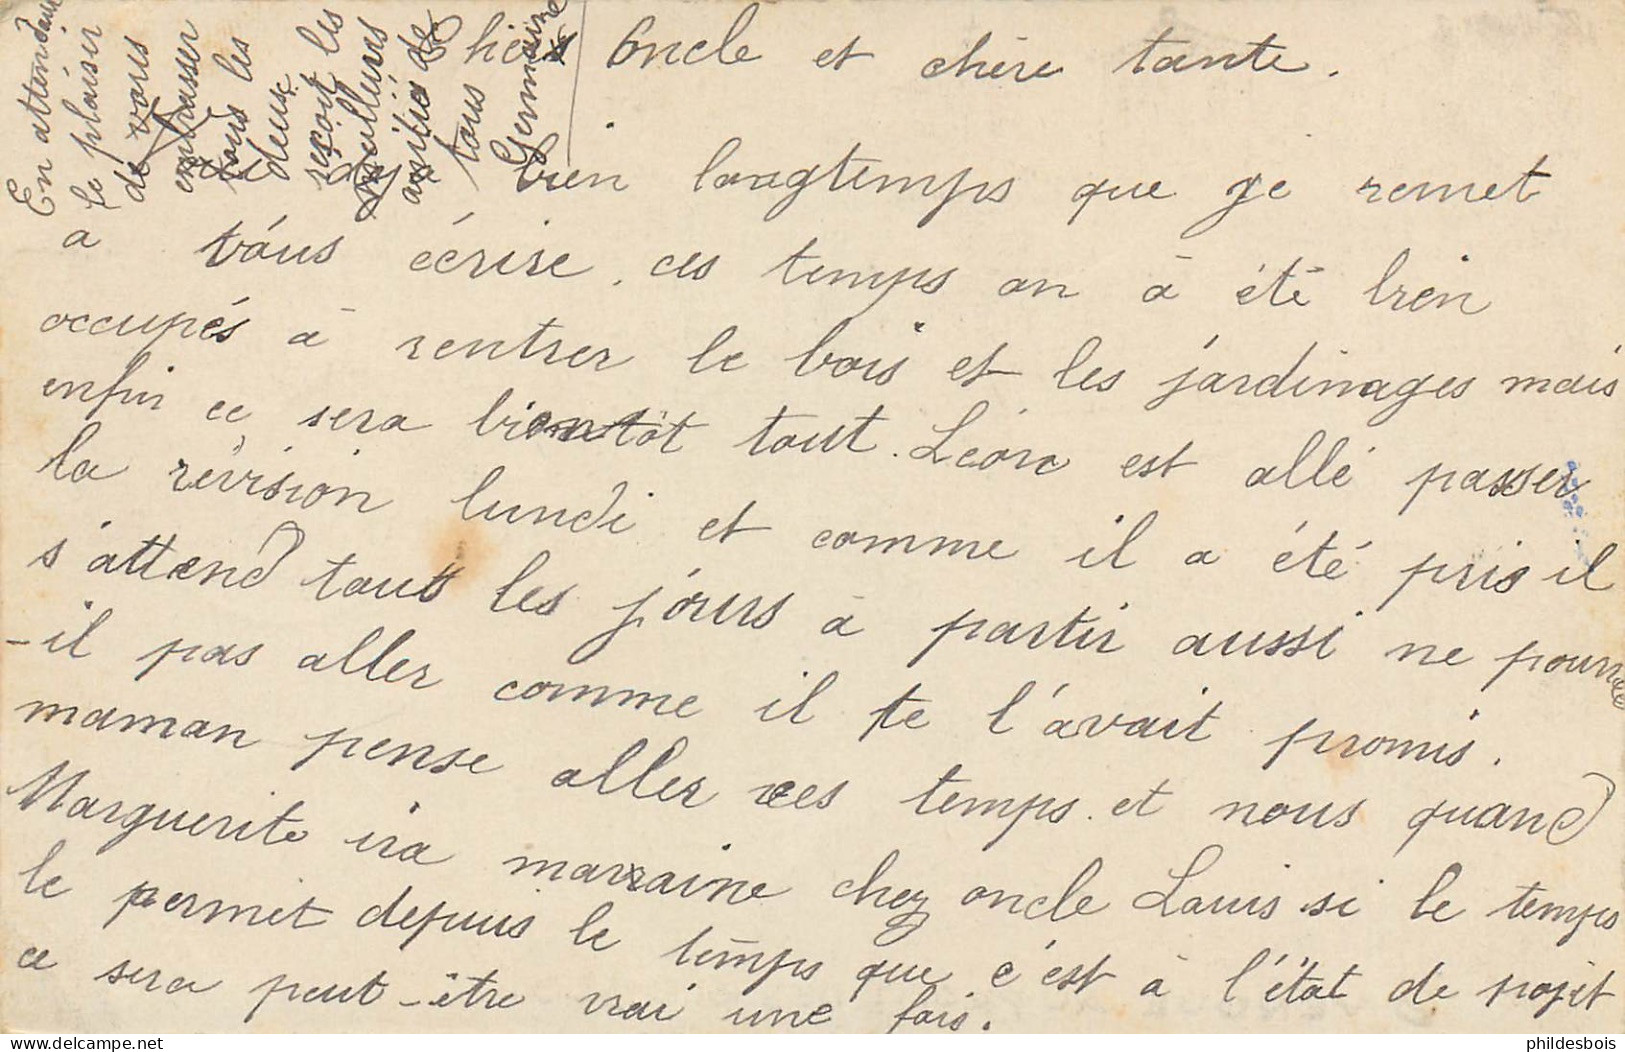 Cher Oncle et chère tante.
bien longtemps que je remet
a vous écrire. ces temps on à été bien
occupés à rentrer le bois et les jardinages mais
enfin ce sera bientôt tout. Léon est allé passer
la révision lundi et comme il a été pris il
s'attend touts les jours à partir aussi ne pourra
-il pas aller comme il te l'avait promis.
maman pense aller ces temps. et nous quand
Marguerite ira marraine chez oncle Louis si le temps
le permet depuis le temps que c'est à l'état de projet
ce sera peut-être vrai une fois.
En attendant
le plaisir
de vous
embrasser
tous les
deux
reçoit les
meilleurs
amitiés de
tous
Germaine
phildesbois